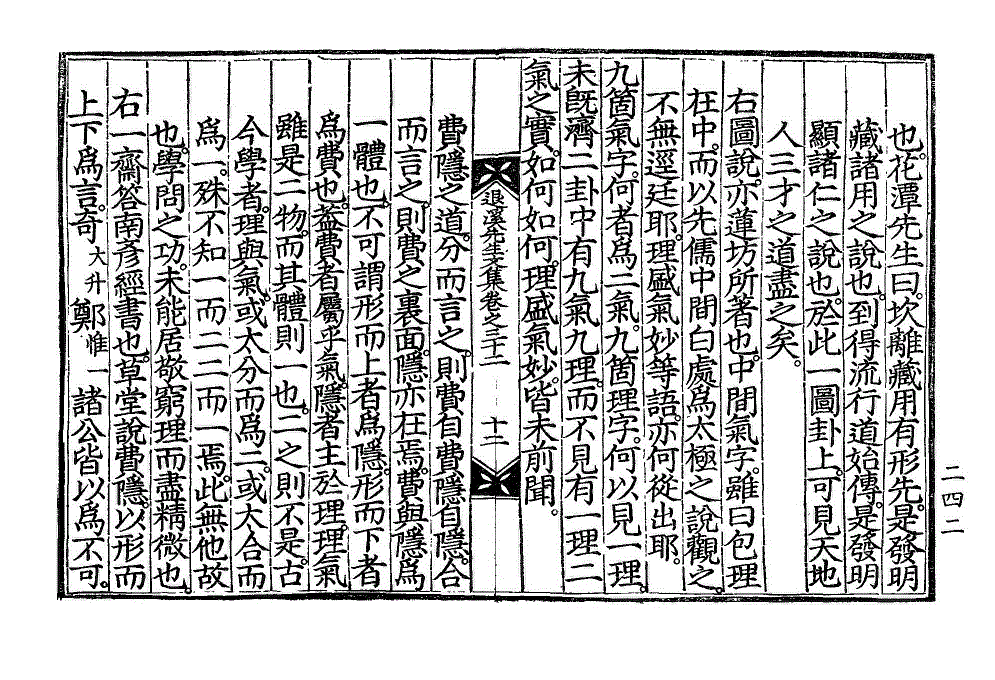 也。花潭先生曰。坎離藏用有形先。是發明
藏諸用之說也。到得流行道始傳。是發明
顯諸仁之說也。於此一圖卦上。可見天地
人三才之道盡之矣。
右圖說。亦蓮坊所著也。中間氣字。雖曰包理
在中。而以先儒中間白處爲太極之說觀之。
不無逕廷耶。理盛氣妙等語。亦何從出耶。
九箇氣字。何者爲二氣。九箇理字。何以見一理。
未旣濟二卦中有九氣九理。而不見有一理二
氣之實。如何如何。理盛氣妙。皆未前聞。
退溪先生文集卷之三十二 十二
費隱之道。分而言之。則費自費隱自隱。合
而言之。則費之裏面。隱亦在焉。費與隱爲
一體也。不可謂形而上者爲隱。形而下者
爲費也。蓋費者屬乎氣。隱者主於理。理氣
雖是二物。而其體則一也。二之則不是。古
今學者。理與氣。或太分而爲二。或太合而
爲一。殊不知一而二二而一焉。此無他故
也。學問之功。未能居敬窮理而盡精微也。
右一齋答南彥經書也。草堂說費隱。以形而
上下爲言。奇大升鄭惟一諸公皆以爲不可。
二四二